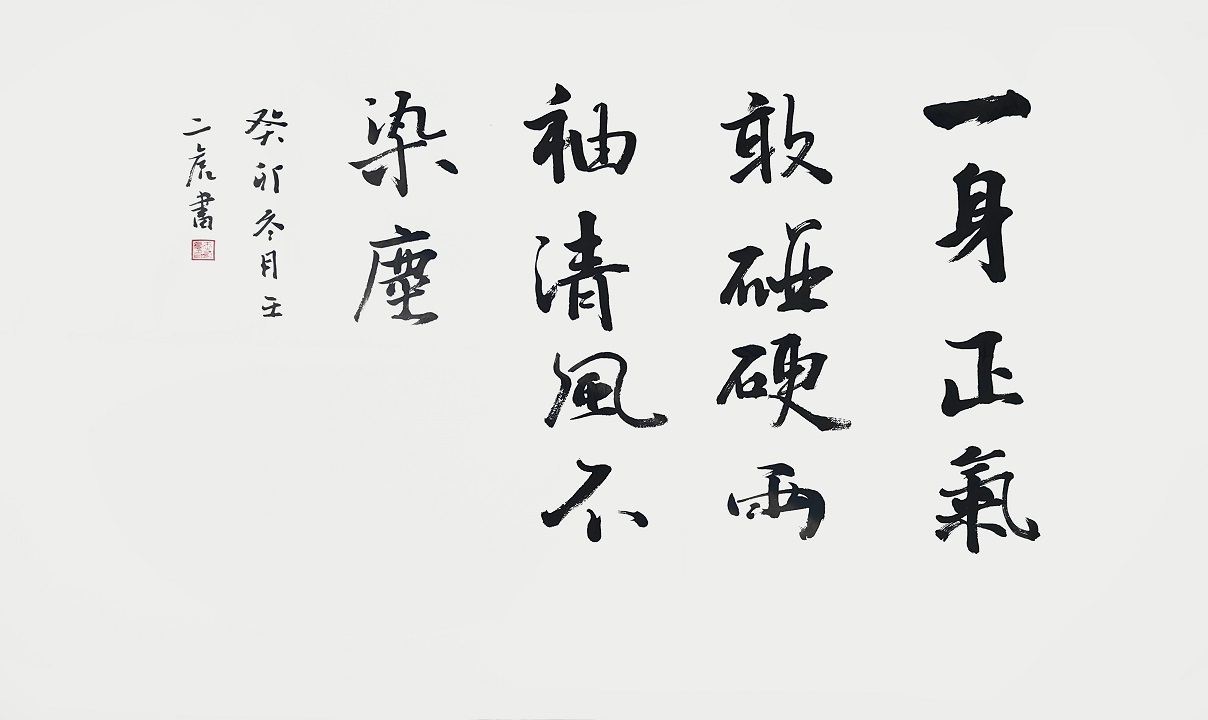 一身正氣
敢碰硬兩
袖清風不
染塵
癸卯冬月王
二虎書